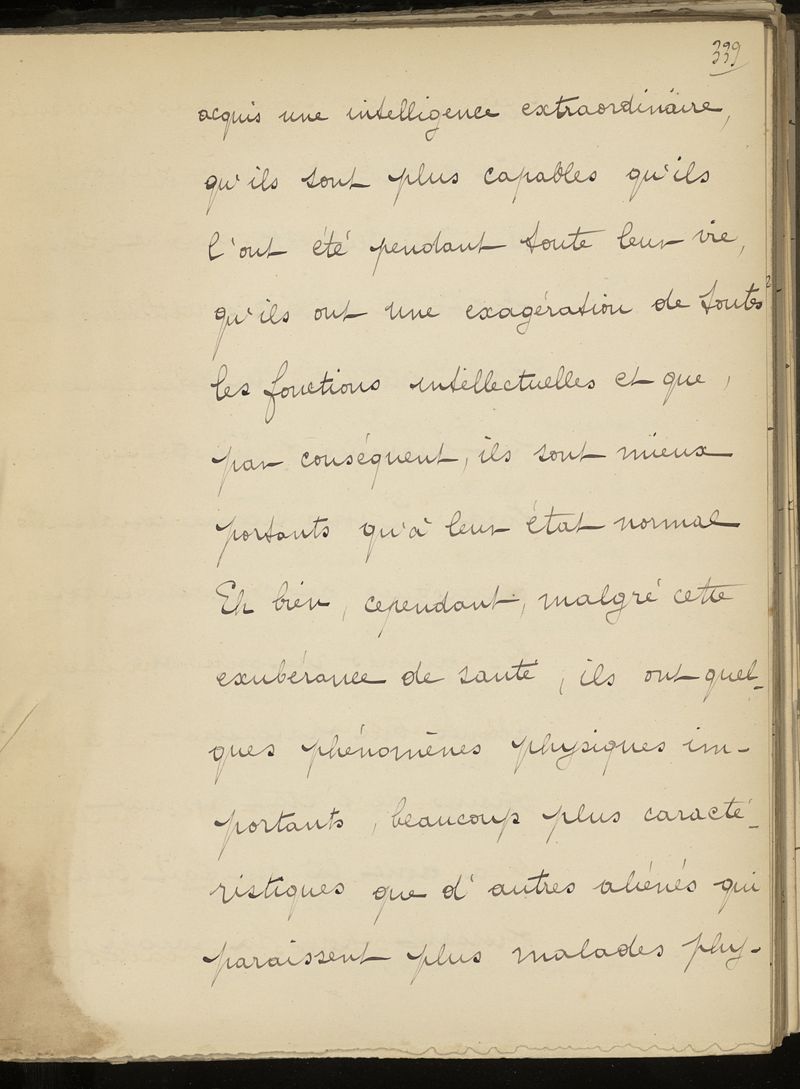 339
acquis une intelligence extraordinaire,
qu'ils sont plus capables qu'ils
l'ont été pendant toute leur vie,
qu'ils ont une exagération de toutes
les fonctions intellectuelles et que,
par conséquent, ils sont mieux
portants qu'à leur état normal
Eh bien, cependant, malgré cette
exubérance de santé, ils ont quel-
ques phénomènes physiques im-
portants, beaucoup plus caracté-
ristiques que d'autres aliénés qui
paraissent plus malades phy-